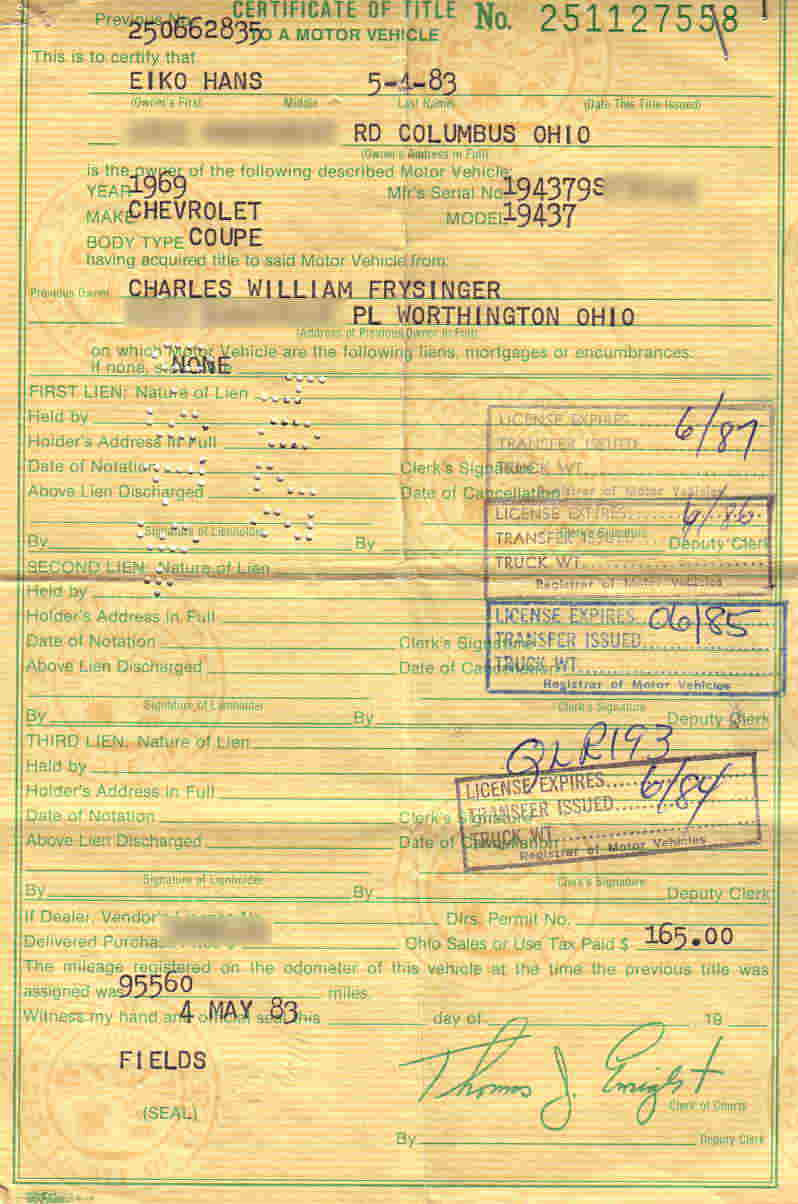 CERTIFICATE OF TITLE No. 251127558
Previous No. 250662835 TO A MOTOR VEHICLE
This is to certify that
EIKO HANS 5-4-83
(Owner's First Middle Last Name) (Date This Title Issued)
RD COLUMBUS OHIO
(Owner's Address in Full)
is the owner of the following described Motor Vehicle:
YEAR 1969 Mfr's Serial No. 194379S
MAKE CHEVROLET MODEL 19437
BODY TYPE COUPE
having acquired title to said Motor Vehicle from:
Previous Owner CHARLES WILLIAM FRYSINGER
PL WORTHINGTON OHIO
(Address of Previous Owner in Full)
on which Motor Vehicle are the following liens, mortgages or encumbrances.
If none, NONE
FIRST LIEN: Nature of Lien
Held by LICENSE EXPIRES 6/87
Holder's Address in Full TRANSFER ISSUED
Date of Notation Clerk's Signature TRUCK WT.
Above Lien Discharged Date of Cancellation Registrar of Motor Vehicles
LICENSE EXPIRES 6/86
Signature of Lienholder Clerk's Signature
By By TRANSFER ISSUED Deputy Clerk
SECOND LIEN: Nature of Lien TRUCK WT.
Held by Registrar of Motor Vehicles
Holder's Address in Full LICENSE EXPIRES 06/85
Date of Notation Clerk's Signature TRANSFER ISSUED
Above Lien Discharged Date of Cancellation TRUCK WT.
Registrar of Motor Vehicles
Signature of Lienholder Clerk's Signature
By By Deputy Clerk
THIRD LIEN: Nature of Lien QLR193
Held by LICENSE EXPIRES 6/84
Holder's Address in Full TRANSFER ISSUED
Date of Notation Clerk's Signature
Above Lien Discharged Date of Cancellation TRUCK WT.
Registrar of Motor Vehicles
Signature of Lienholder Clerk's Signature
By By Deputy Clerk
If Dealer, Vendor's Dlrs. Permit No.
Delivered Ohio Sales or Use Tax Paid $ 165.00
The mileage registered on the odometer of this vehicle at the time the previous title was
assigned was 95560 miles.
Witness my hand and official seal this 4 MAY 83 day of 19
FIELDS
Thomas J. Enright
Clerk of Courts
(SEAL)
By Deputy Clerk